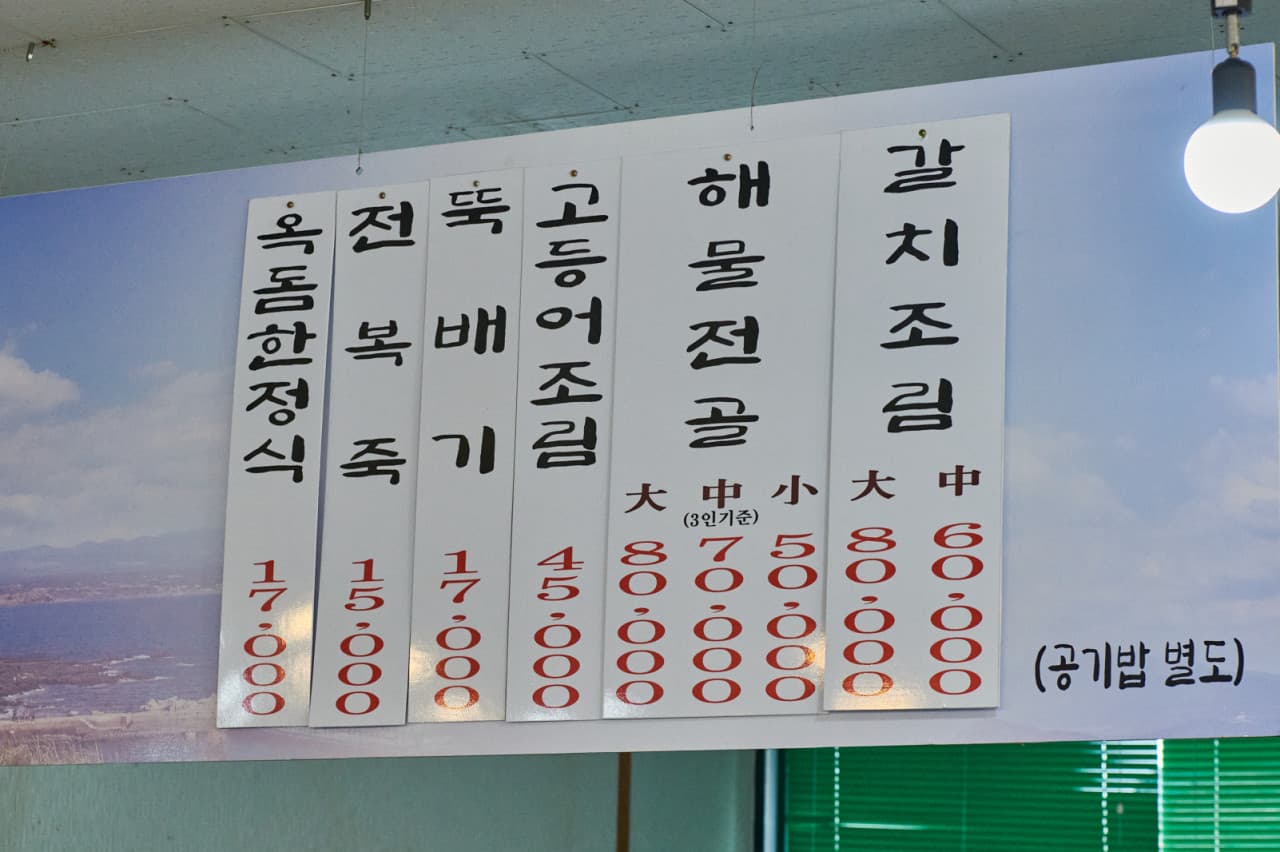 옥돔한정식 17,000
전복죽 15,000
뚝배기 17,000
고등어조림 45,000
해물전골
大 中 小
(3인기준)
80,000 70,000 50,000
갈치조림
大 中
80,000 60,000
(공기밥 별도)